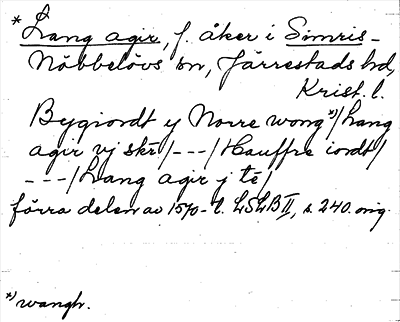 * Lang agir, f. åker i Simris-
Nöbbelövs sn, Järrestads hd,
Krist. l.
Bygiordt y Norre wong *)/Lang
agir vj skr/---/Hauffre iordt/
---/Lang agir j tē/
förra delen av 1570-t. LSLB II, s. 240. orig.
*) wangh.